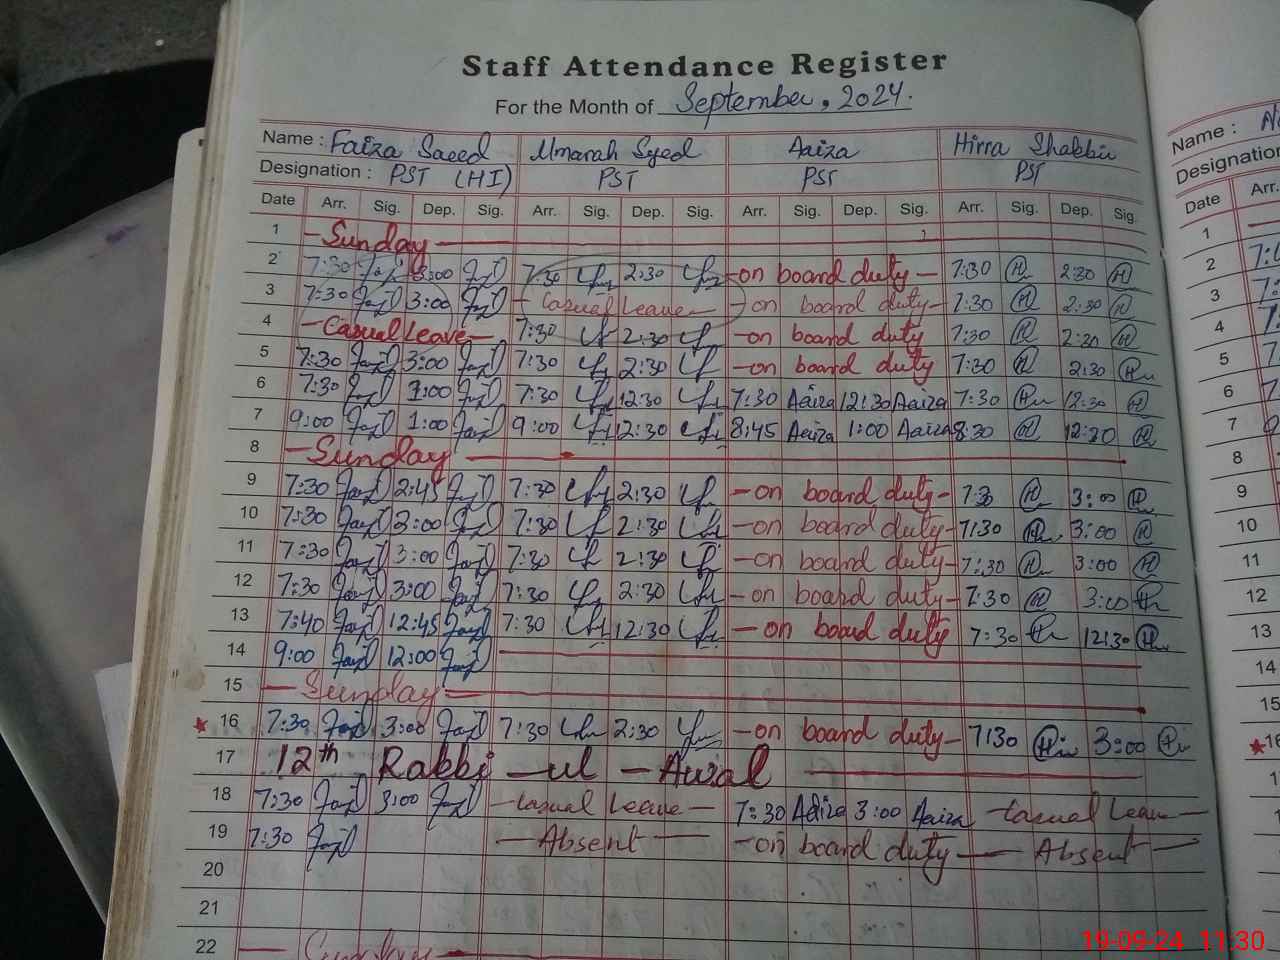 Staff Attendance Register
For the Month of September, 2024.
Name : Faiza Saeed Umarah Syed Aaiza Hirra Shabbir
Designation : PST (HI) PST PST PST
Date Arr. Sig. Dep. Sig. Arr. Sig. Dep. Sig. Arr. Sig. Dep. Sig. Arr. Sig. Dep. Sig.
1 - Sunday -
2 7:30 3:00 7:30 2:30 - on board duty - 7:30 2:30
3 7:30 3:00 - Casual Leave - - on board duty - 7:30 2:30
4 - Casual Leave - 7:30 2:30 - on board duty 7:30 2:30
5 7:30 3:00 7:30 2:30 - on board duty 7:30 2:30
6 7:30 1:00 7:30 12:30 7:30 Aaiza 12:30 Aaiza 7:30 12:30
7 9:00 1:00 9:00 12:30 8:45 Aaiza 1:00 Aaiza 8:30 12:30
8 - Sunday -
9 7:30 2:45 7:30 2:30 - on board duty - 7:30 3:00
10 7:30 3:00 7:30 2:30 - on board duty - 7:30 3:00
11 7:30 3:00 7:30 2:30 - on board duty - 7:30 3:00
12 7:30 3:00 7:30 2:30 - on board duty - 7:30 3:00
13 7:40 12:45 7:30 12:30 - on board duty 7:30 12:30
14 9:00 12:00
15 - Sunday =
16 7:30 3:00 7:30 2:30 - on board duty - 7:30 3:00
17 12th Rabbi - ul - Awal
18 7:30 3:00 - Casual Leave - 7:30 Aaiza 3:00 Aaiza - Casual Leave -
19 7:30 - Absent - - on board duty - Absent -
20
21
22 - Sunday -
Name :
Designation
Date Arr.
1
2
3
4
5
6
7
8
9
10
11
12
13
14
15
16
19-09-24 11:30